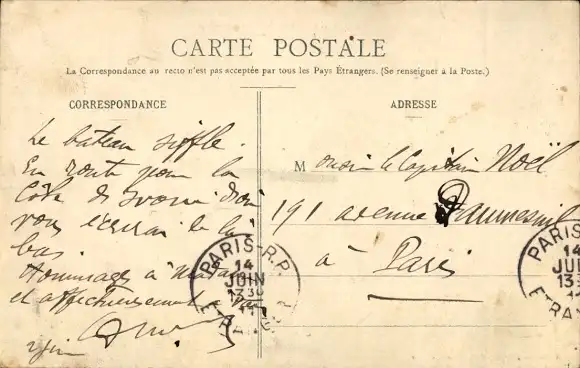 CARTE POSTALE
La Correspondance au recto n'est pas acceptée par tous les Pays Étrangers. (Se renseigner à la Poste.)
CORRESPONDANCE
Le bateau siffle.
En route pour la
Côte d'Ivoire d'où
vous écrirai de là
bas.
Hommages à
et affectueusement à
ADRESSE
Monsieur le Capitaine Noël
191 avenue Daumesnil
à Paris
PARIS-R.P.
14
JUIN
13
ETRANGER
PARIS
14
JUI
13
ETRAN